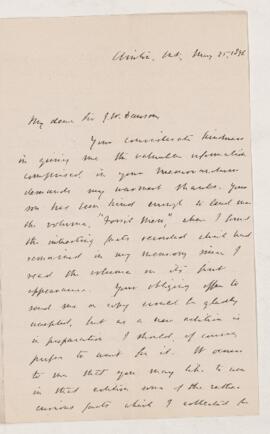 Clinton, Ont, May 25, 1886
My dear Sir J.W. Dawson,
Your considerate kindness
in giving me the valuable information
comprised in your memorandum
demands my warmest thanks. Your
son has been kind enough to lend me
the volume, "Fossil Men," where I found
the interesting facts recorded which had
remained in my memory since I
read the volume on its first
appearance. Your obliging offer to
send me a copy would be gladly
accepted, but as a new edition is
in preparation I should, of course,
prefer to wait for it. It occurs
to me that you may like to use
in that edition some of the rather
curious facts which I collected for